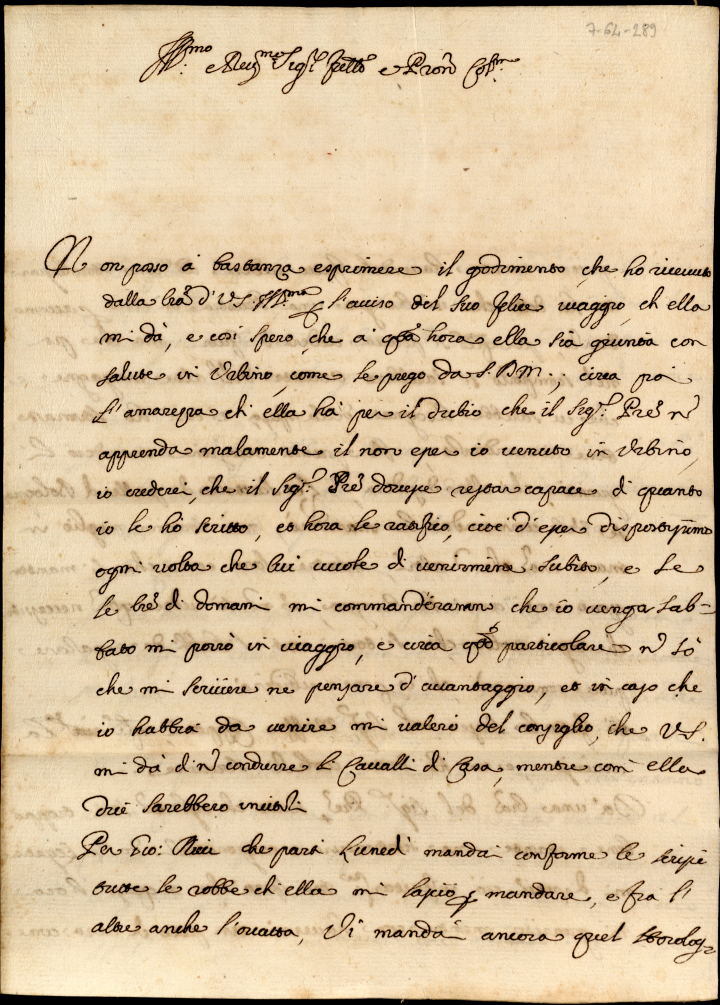 7-64-289
Ill.mo e Rev.mo Sig.r Frello e Pron Col.mo
Non posso à bastanza esprimere il godimento, che ho riceuuto
dalla lra d' VS. Ill.ma l'auiso del suo felice uiaggio, ch ella
mi dà, e così spero, che à qsta hora ella sia giunta con
salute in Vrbino, come le prego da S. D. M.; circa poi
l'amarezza ch' ella hà per il dubio che il Sig.r Pre nr̃
apprenda malamente il non esser io uenuto in Vrbino,
io crederei, che il Sig.r Pre douesse restar capace di quanto
io le hò scritto, et hora le ratifico, cioè d'esser dispostissimo
ogni uolta che lui uuole di uenirmene subito, e se
le lre di domani mi commanderanno che io uenga sab-
bato mi porrò in uiaggio, e circa qsto particolare nõ sò
che mi scriuere ne pensare d'auantaggio, et in caso che
io habbia da uenire mi ualerò del consiglio, che VS.
mi dà di nõ condurre li Caualli di Casa, mentre com' ella
dice sarebbero inutili
Per Gio: Ricci che partì Lunedì mandai conforme le scrissi
tutte le robbe ch' ella mi lasciò p mandare, e fra l'
altre anche l'ouatta, Vi mandai ancora quel Horolog